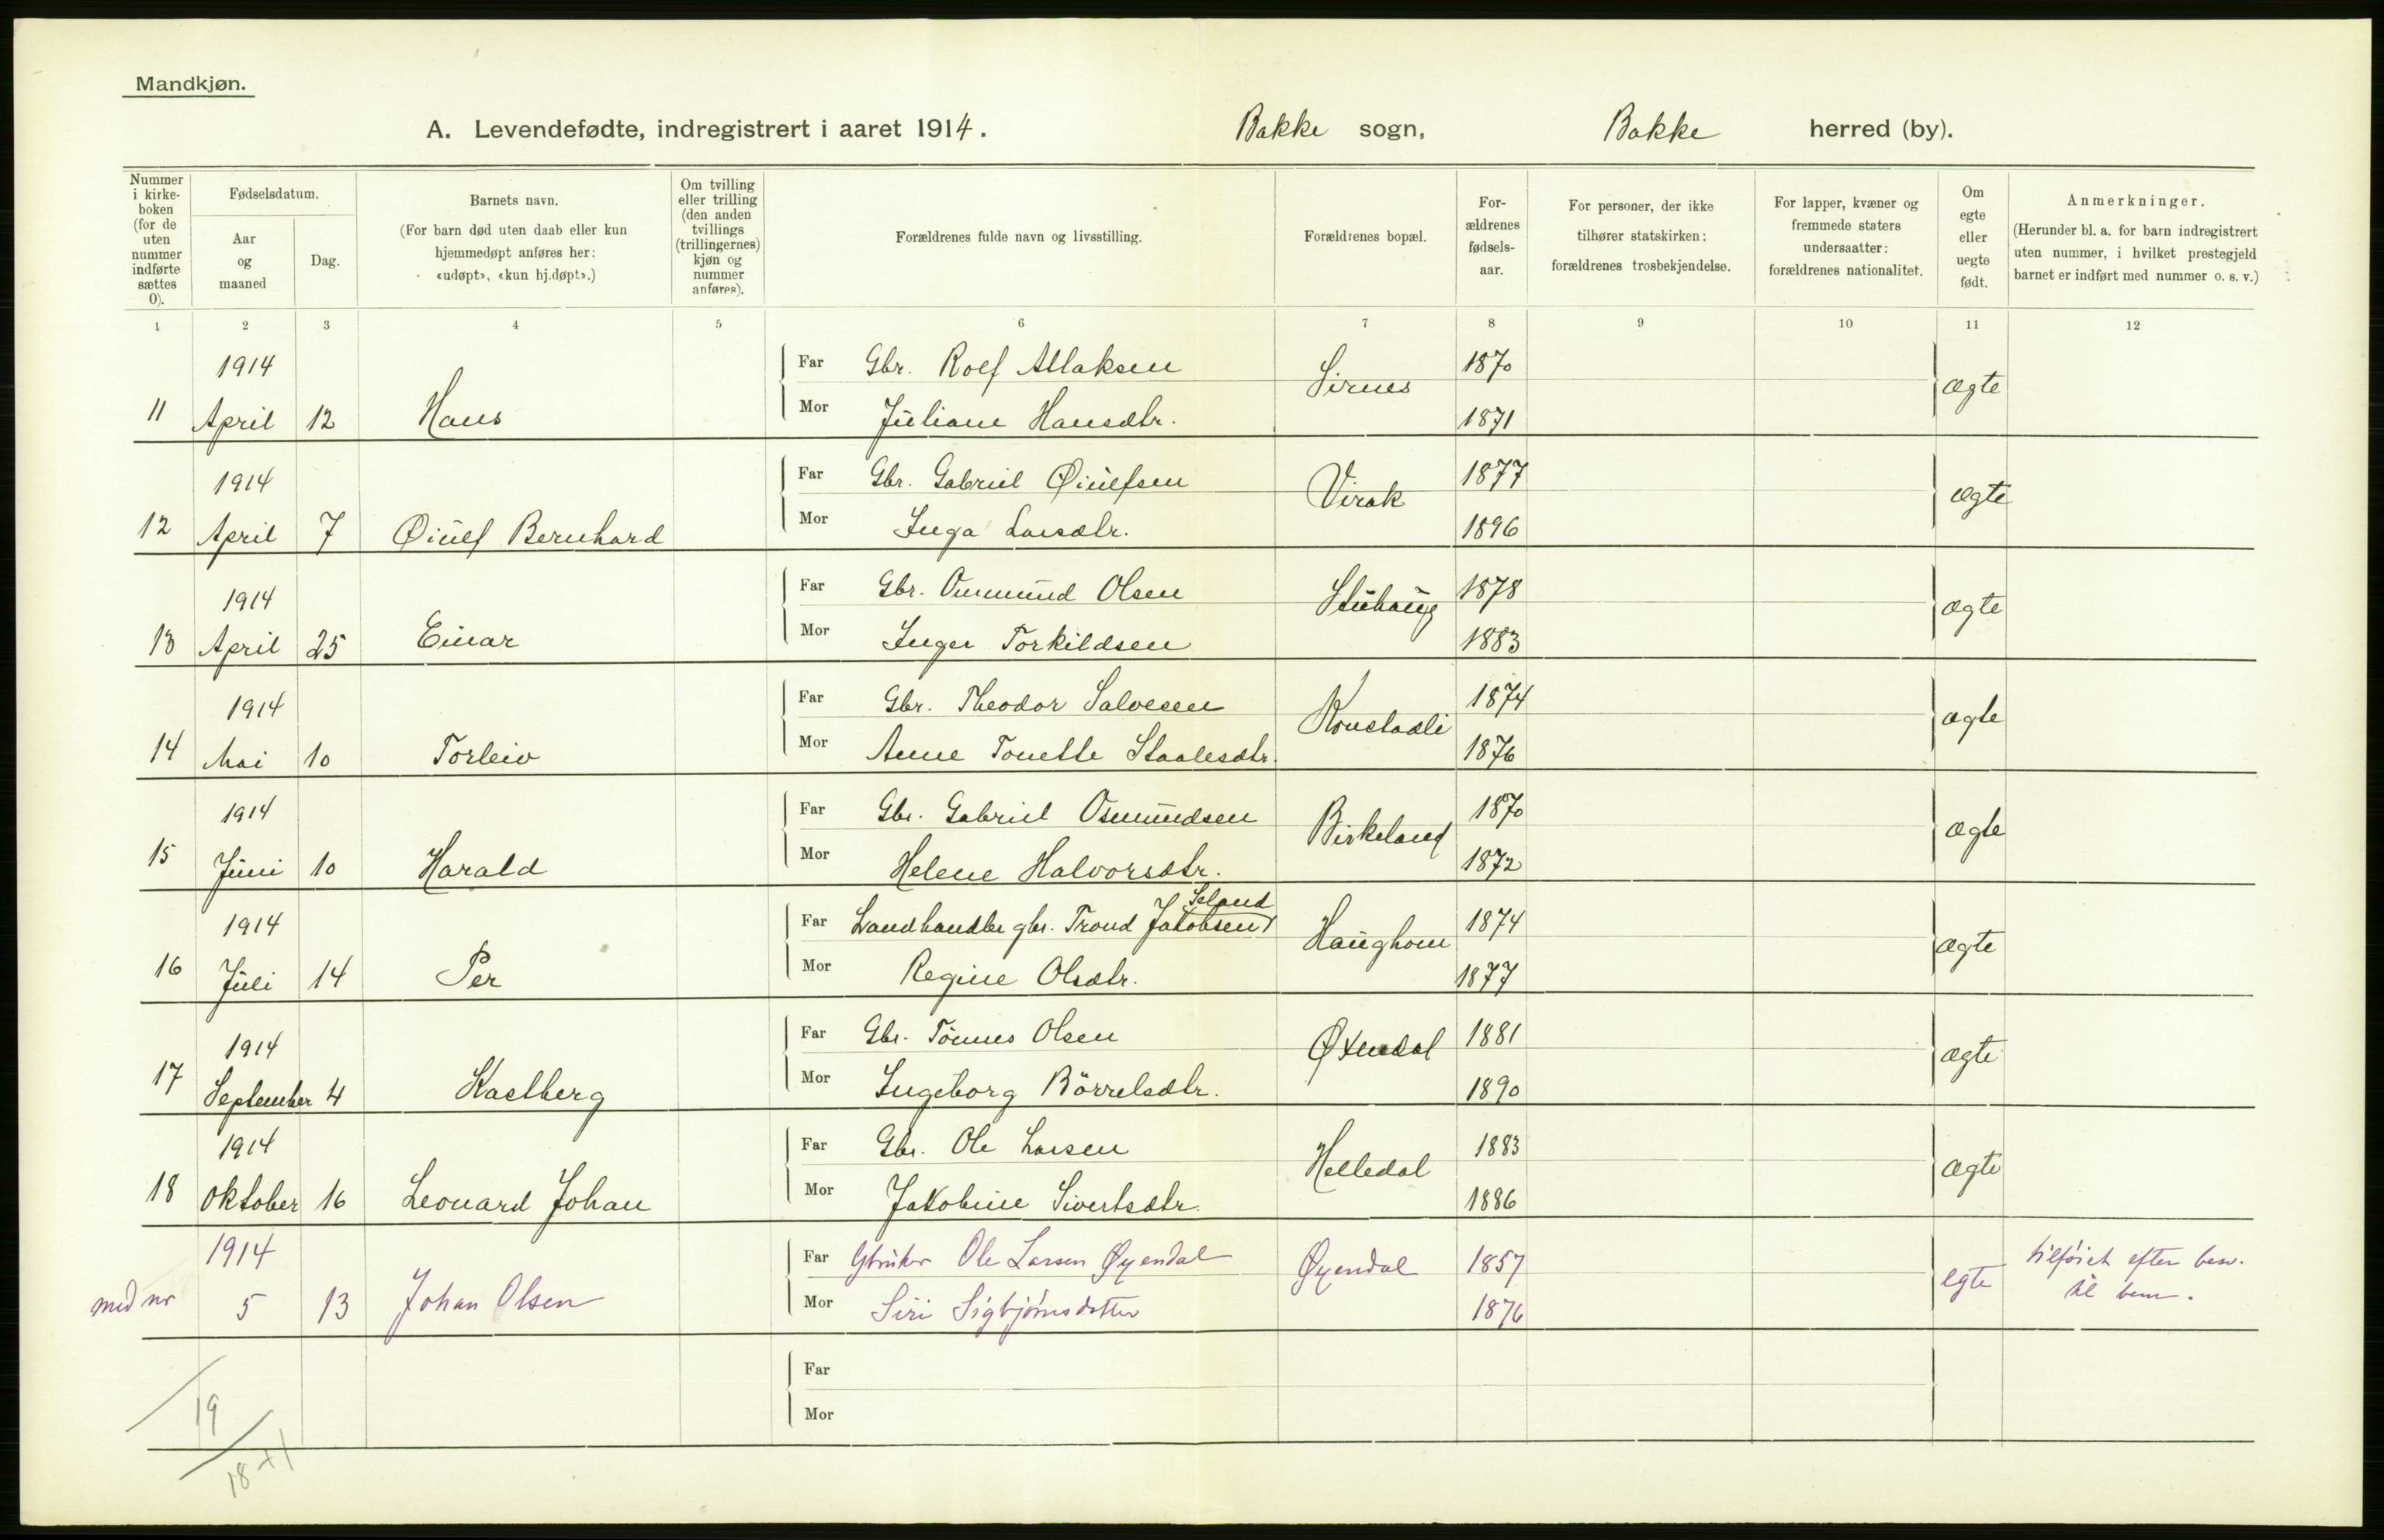 Mandkjøn.
A. Levendefødte, indregistrert i aaret 1914. Bakke sogn, Bakke herred (by).
Nummer i kirke-boken (for de uten nummer indførte sættes 0).
Fødselsdatum.
Aar og maaned
Dag.
Barnets navn.
(For barn død uten daab eller kun hjemmedøpt anføres her: «udøpt», «kun hj.døpt».)
Om tvilling eller trilling (den anden tvillings (trillingernes) kjøn og nummer anføres).
Forældrenes fulde navn og livsstilling.
Forældrenes bopæl.
For-ældrenes fødsels-aar.
For personer, der ikke tilhører statskirken: forældrenes trosbekjendelse.
For lapper, kvæner og fremmede staters undersaatter: forældrenes nationalitet.
Om egte eller uegte født.
Anmerkninger.
(Herunder bl. a. for barn indregistrert uten nummer, i hvilket prestegjeld barnet er indført med nummer o. s. v.)
1 2 3 4 5 6 7 8 9 10 11 12
1914 Far Gbr. Rolf Atlaksen Sirnes 1870 ægte
11 April 12 Hans Mor Juliane Hansdtr. 1871
1914 Far Gbr. Gabriel Øiulfsen Virak 1877 ægte
12 April 7 Øiulf Bernhard Mor Inga Larsdtr. 1896
1914 Far Gbr. Ommund Olsen Stuhaug 1878 ægte
13 April 25 Einar Mor Inger Torkildsen 1883
1914 Far Gbr. Theodor Salvesen Konstadli 1874 ægte
14 Mai 10 Torleiv Mor Anne Tonette Staalesdtr. 1876
1914 Far Gbr. Gabriel Osmundsen Birkeland 1870 ægte
15 Juni 10 Harald Mor Helene Halvorsdtr. 1872
1914 Far Landhandler gbr. Trond Jakobsen Seland Haughom 1874 ægte
16 Juli 14 Per Mor Regine Olsdtr. 1877
1914 Far Gbr. Tönnes Olsen Øxendal 1881 ægte
17 September 4 Kastberg Mor Ingeborg Börrelsdtr. 1890
1914 Far Gbr. Ole Larsen Helledal 1883 ægte
18 Oktober 16 Leonard Johan Mor Jakobine Sivertsdtr. 1886
1914 Far Gbruker Ole Larsen Øyendal Øyendal 1857 egte tilføiet efter besv.
med nr 5 13 Johan Olsen Mor Siri Sigbjørnsdotter 1876 til bem.
Far
Mor
19
18+1